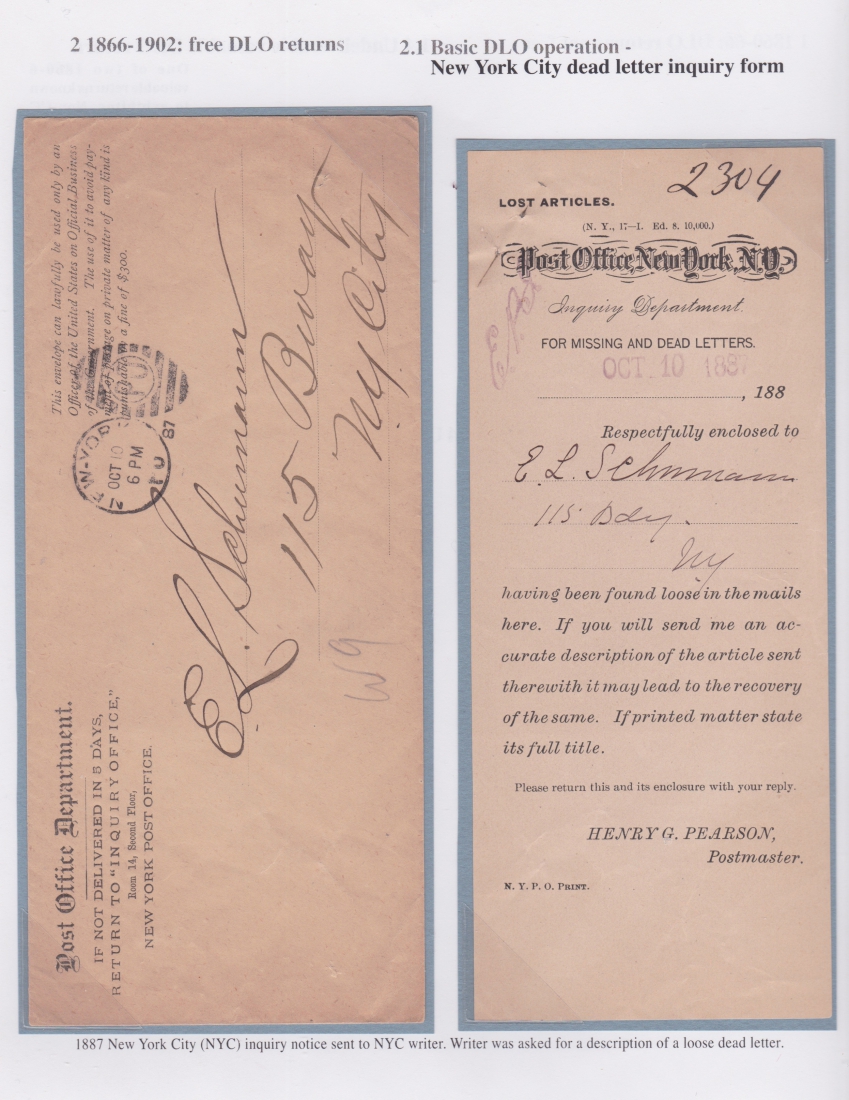 2 1866-1902: free DLO returns
2.1 Basic DLO operation -
New York City dead letter inquiry form
This envelope can lawfully be used only by an
Officer of the United States on Official Business
of the Government. The use of it to avoid pay-
ment of postage on private matter of any kind is
punishable by a fine of $300.
NEW-YORK
OCT 10
6 PM
87
E. L. Schumann
115 Bway
N.Y. City
W9
Post Office Department.
IF NOT DELIVERED IN 5 DAYS,
RETURN TO "INQUIRY OFFICE,"
Room 14, Second Floor,
NEW YORK POST OFFICE.
2304
LOST ARTICLES.
(N. Y., 17—I. Ed. 8. 10,000.)
Post Office, New York, N.Y.
Inquiry Department.
FOR MISSING AND DEAD LETTERS.
OCT 10 1887
, 188
Respectfully enclosed to
E. L. Schumann
115 Bdy.
Ny
having been found loose in the mails
here. If you will send me an ac-
curate description of the article sent
therewith it may lead to the recovery
of the same. If printed matter state
its full title.
Please return this and its enclosure with your reply.
HENRY G. PEARSON,
Postmaster.
N. Y. P. O. PRINT.
1887 New York City (NYC) inquiry notice sent to NYC writer. Writer was asked for a description of a loose dead letter.